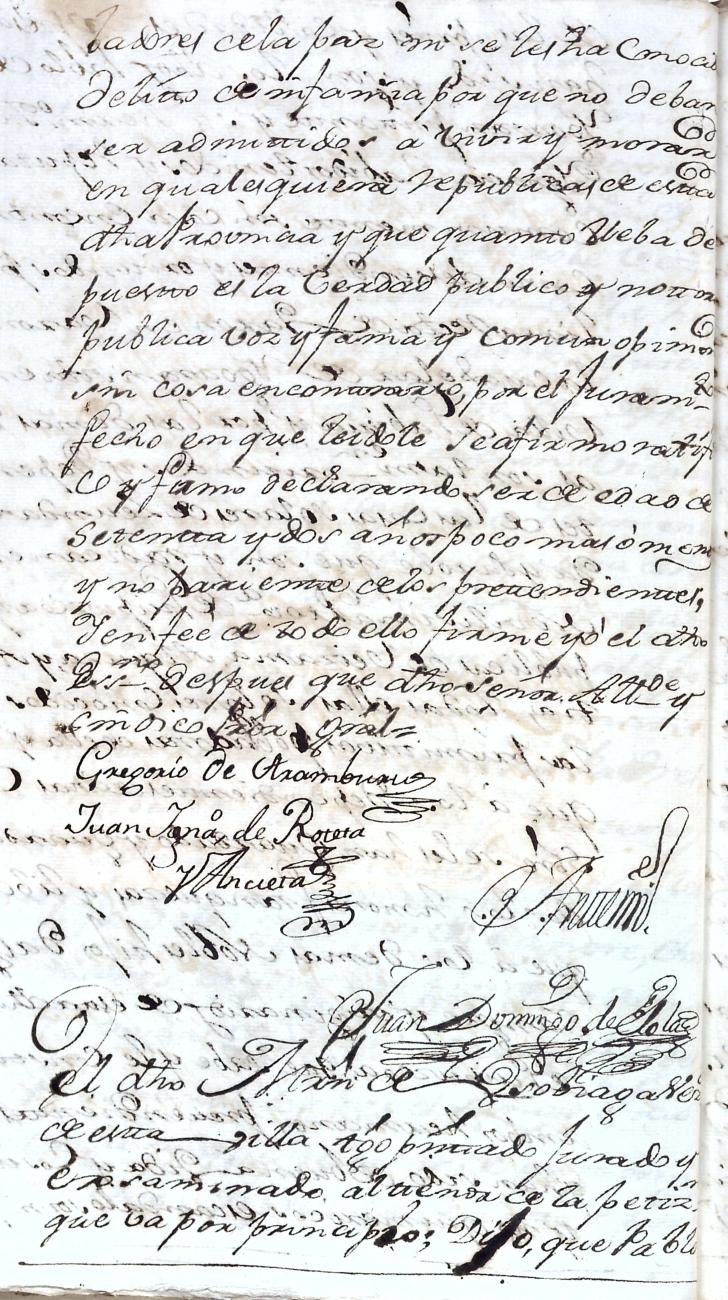 badores de la paz ni se les ha Conoci
delitto de infamia por que no deban
ser admittidos a vivir y morar
en qualesquiera republicas de esta
dha Provincia y que quantto lleba de
puestto es la Verdad publico y nottor
publica voz y fama y comun opinion
sin cosa en conttrario, por el Juram-to
fecho en que leidole se afirmo ratifi
co y firmo declarando ser de edad de
Settentta y dos años poco mas ó men
y no parientte de los prettendienttes,
Y en feé de todo ello firmé yo el dho
Ess-no despues que dho señor Alld-e y
Sindico Pror gral=
Gregorio de Aramburu
Juan Igna.o de Roteta
y Ancieta
Antte mi
Juan Domingo de
El dho Mrn de
de estta villa tgo pnttado Jurado y
exsaminado al ttenor de la petiz.n
que va por principio; Dijo, que Pablo